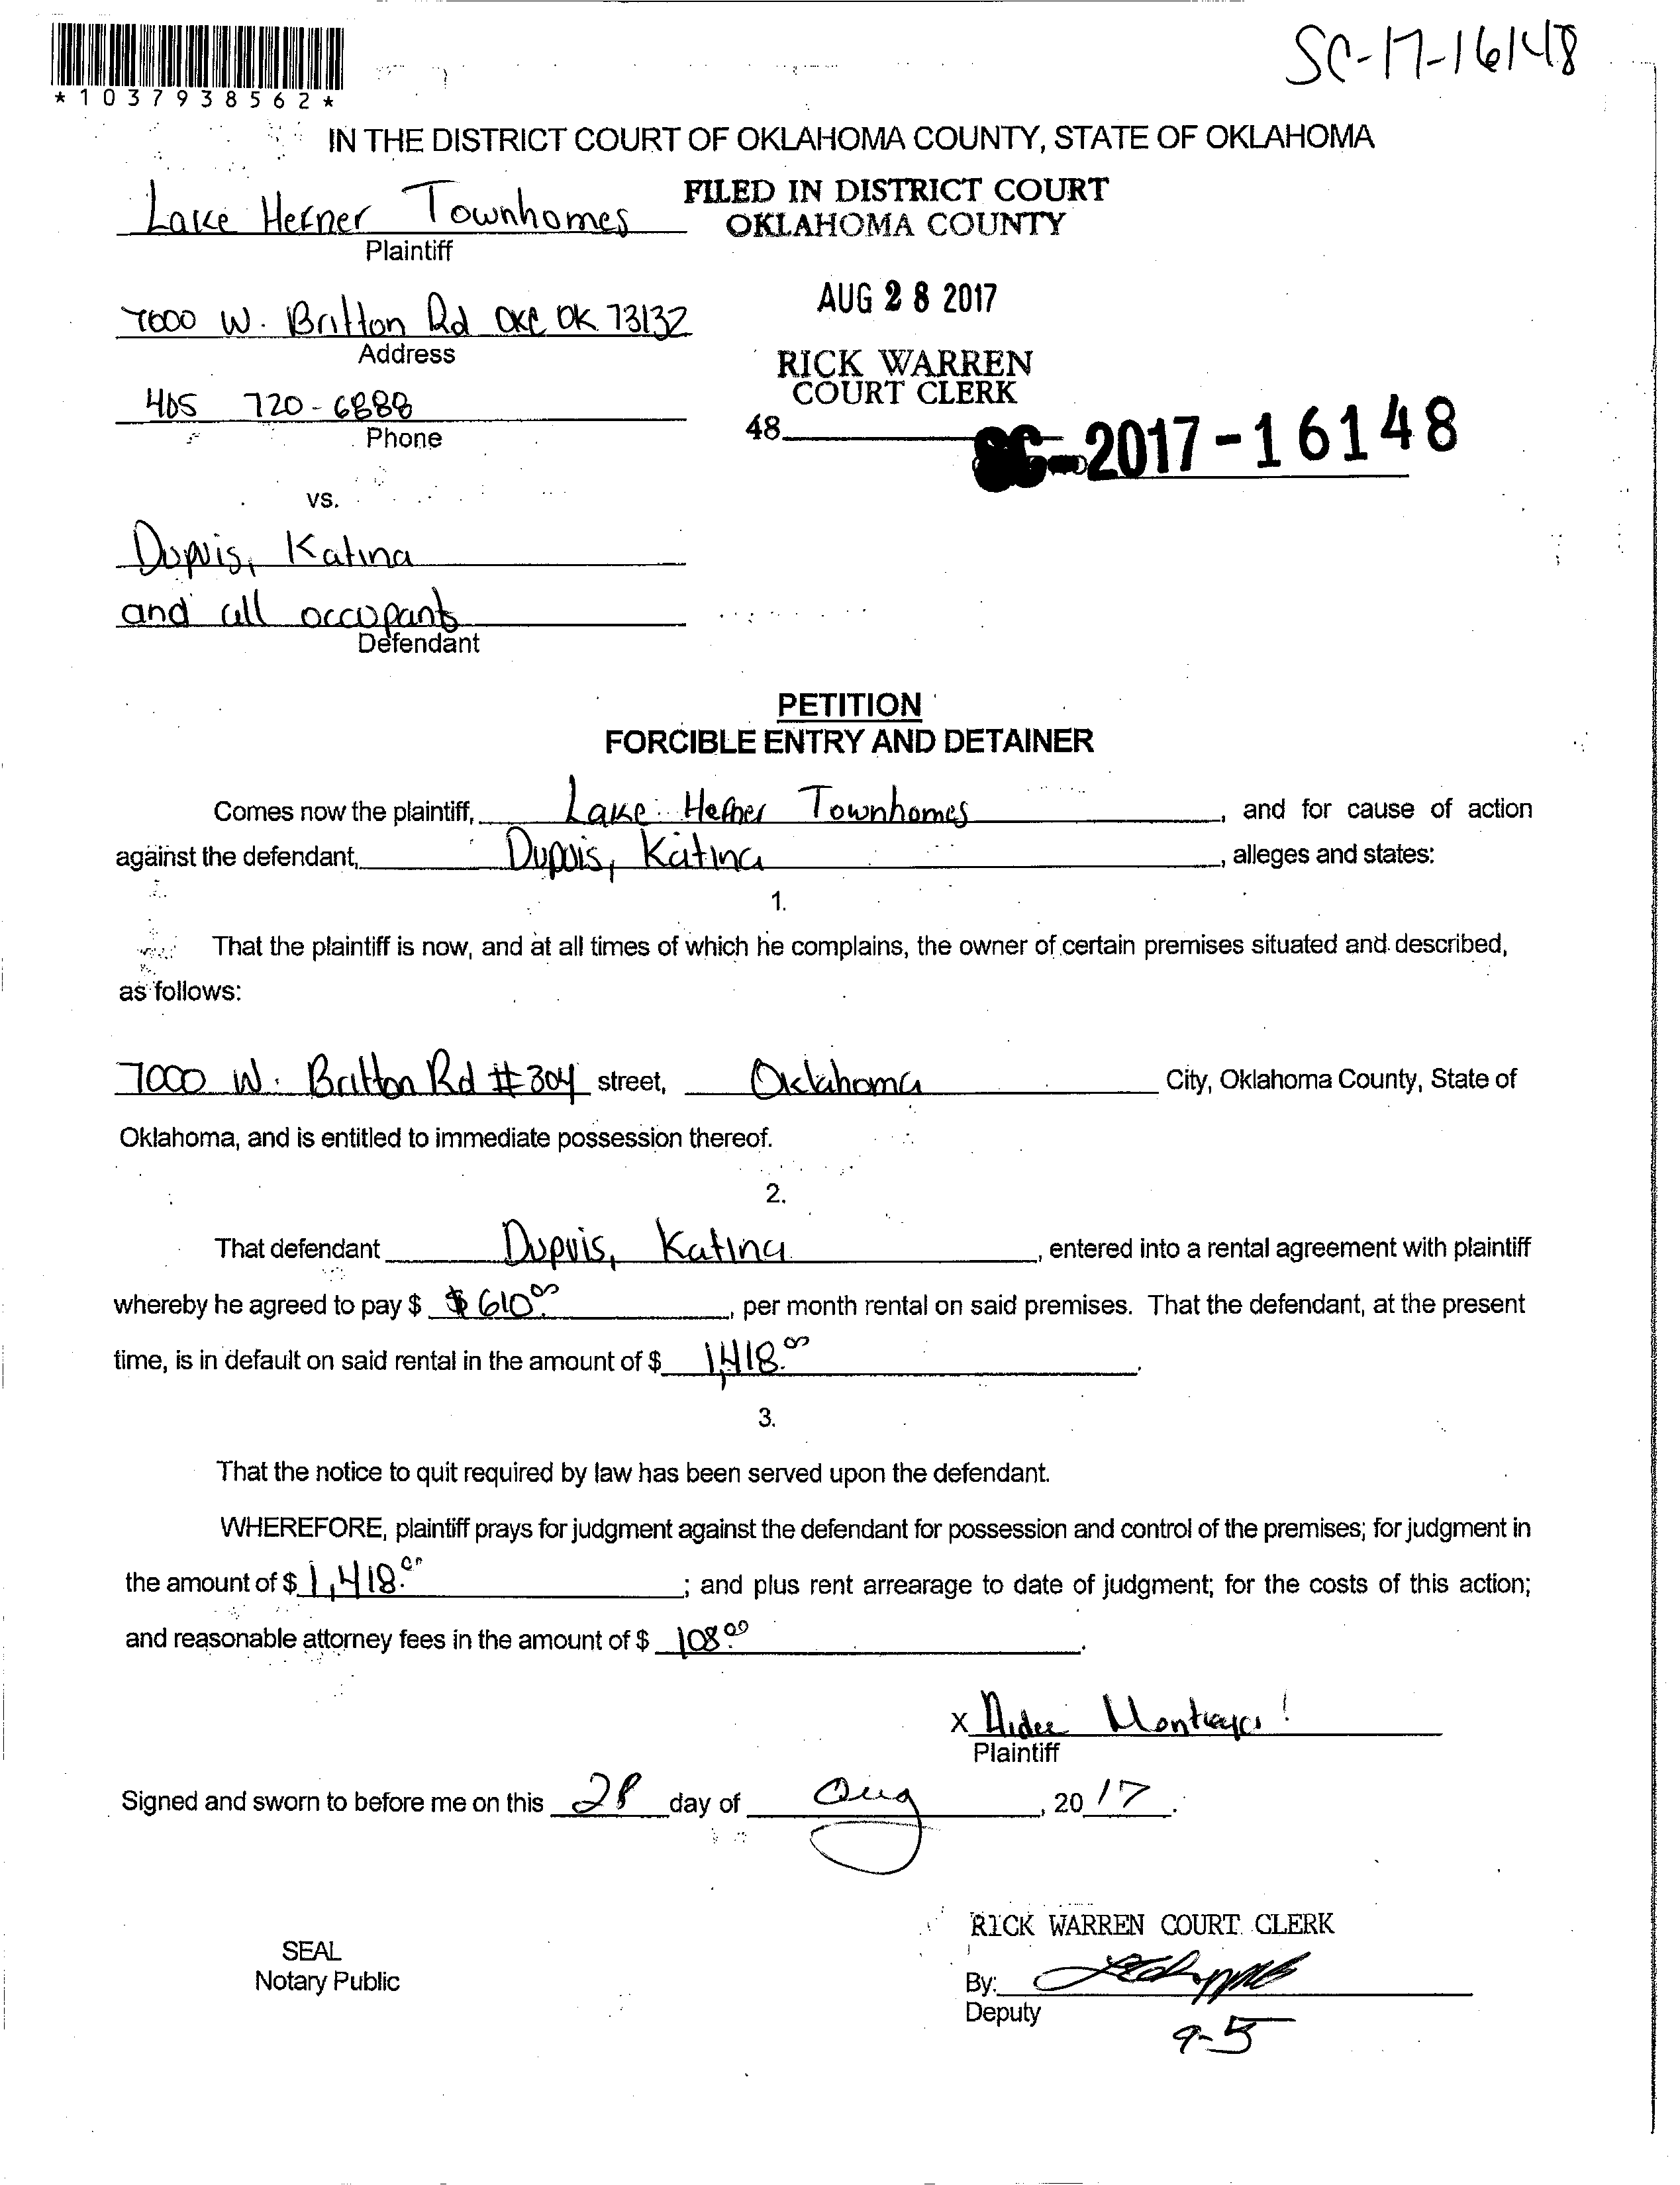 SC-17-16148
*1037938562*
IN THE DISTRICT COURT OF OKLAHOMA COUNTY, STATE OF OKLAHOMA
Lake Hefner Townhomes
Plaintiff
FILED IN DISTRICT COURT
OKLAHOMA COUNTY
7000 W. Britton Rd OKC OK 73132
Address
AUG 28 2017
RICK WARREN
COURT CLERK
405 720-6888
Phone
48
SC-2017-16148
vs.
Dupuis, Katina
and all occupants
Defendant
PETITION
FORCIBLE ENTRY AND DETAINER
Comes now the plaintiff, Lake Hefner Townhomes, and for cause of action
against the defendant, Dupuis, Katina, alleges and states:
1.
That the plaintiff is now, and at all times of which he complains, the owner of certain premises situated and described,
as follows:
7000 W. Britton Rd #304 street, Oklahoma City, Oklahoma County, State of
Oklahoma, and is entitled to immediate possession thereof.
2.
That defendant Dupuis, Katina, entered into a rental agreement with plaintiff
whereby he agreed to pay $ $610.00, per month rental on said premises. That the defendant, at the present
time, is in default on said rental in the amount of $ 1,418.00.
3.
That the notice to quit required by law has been served upon the defendant.
WHEREFORE, plaintiff prays for judgment against the defendant for possession and control of the premises; for judgment in
the amount of $ 1,418.00; and plus rent arrearage to date of judgment; for the costs of this action;
and reasonable attorney fees in the amount of $ 108.00.
x Aidee
Plaintiff
Signed and sworn to before me on this 28 day of Aug, 2017.
SEAL
Notary Public
RICK WARREN COURT CLERK
By:
Deputy
9-5